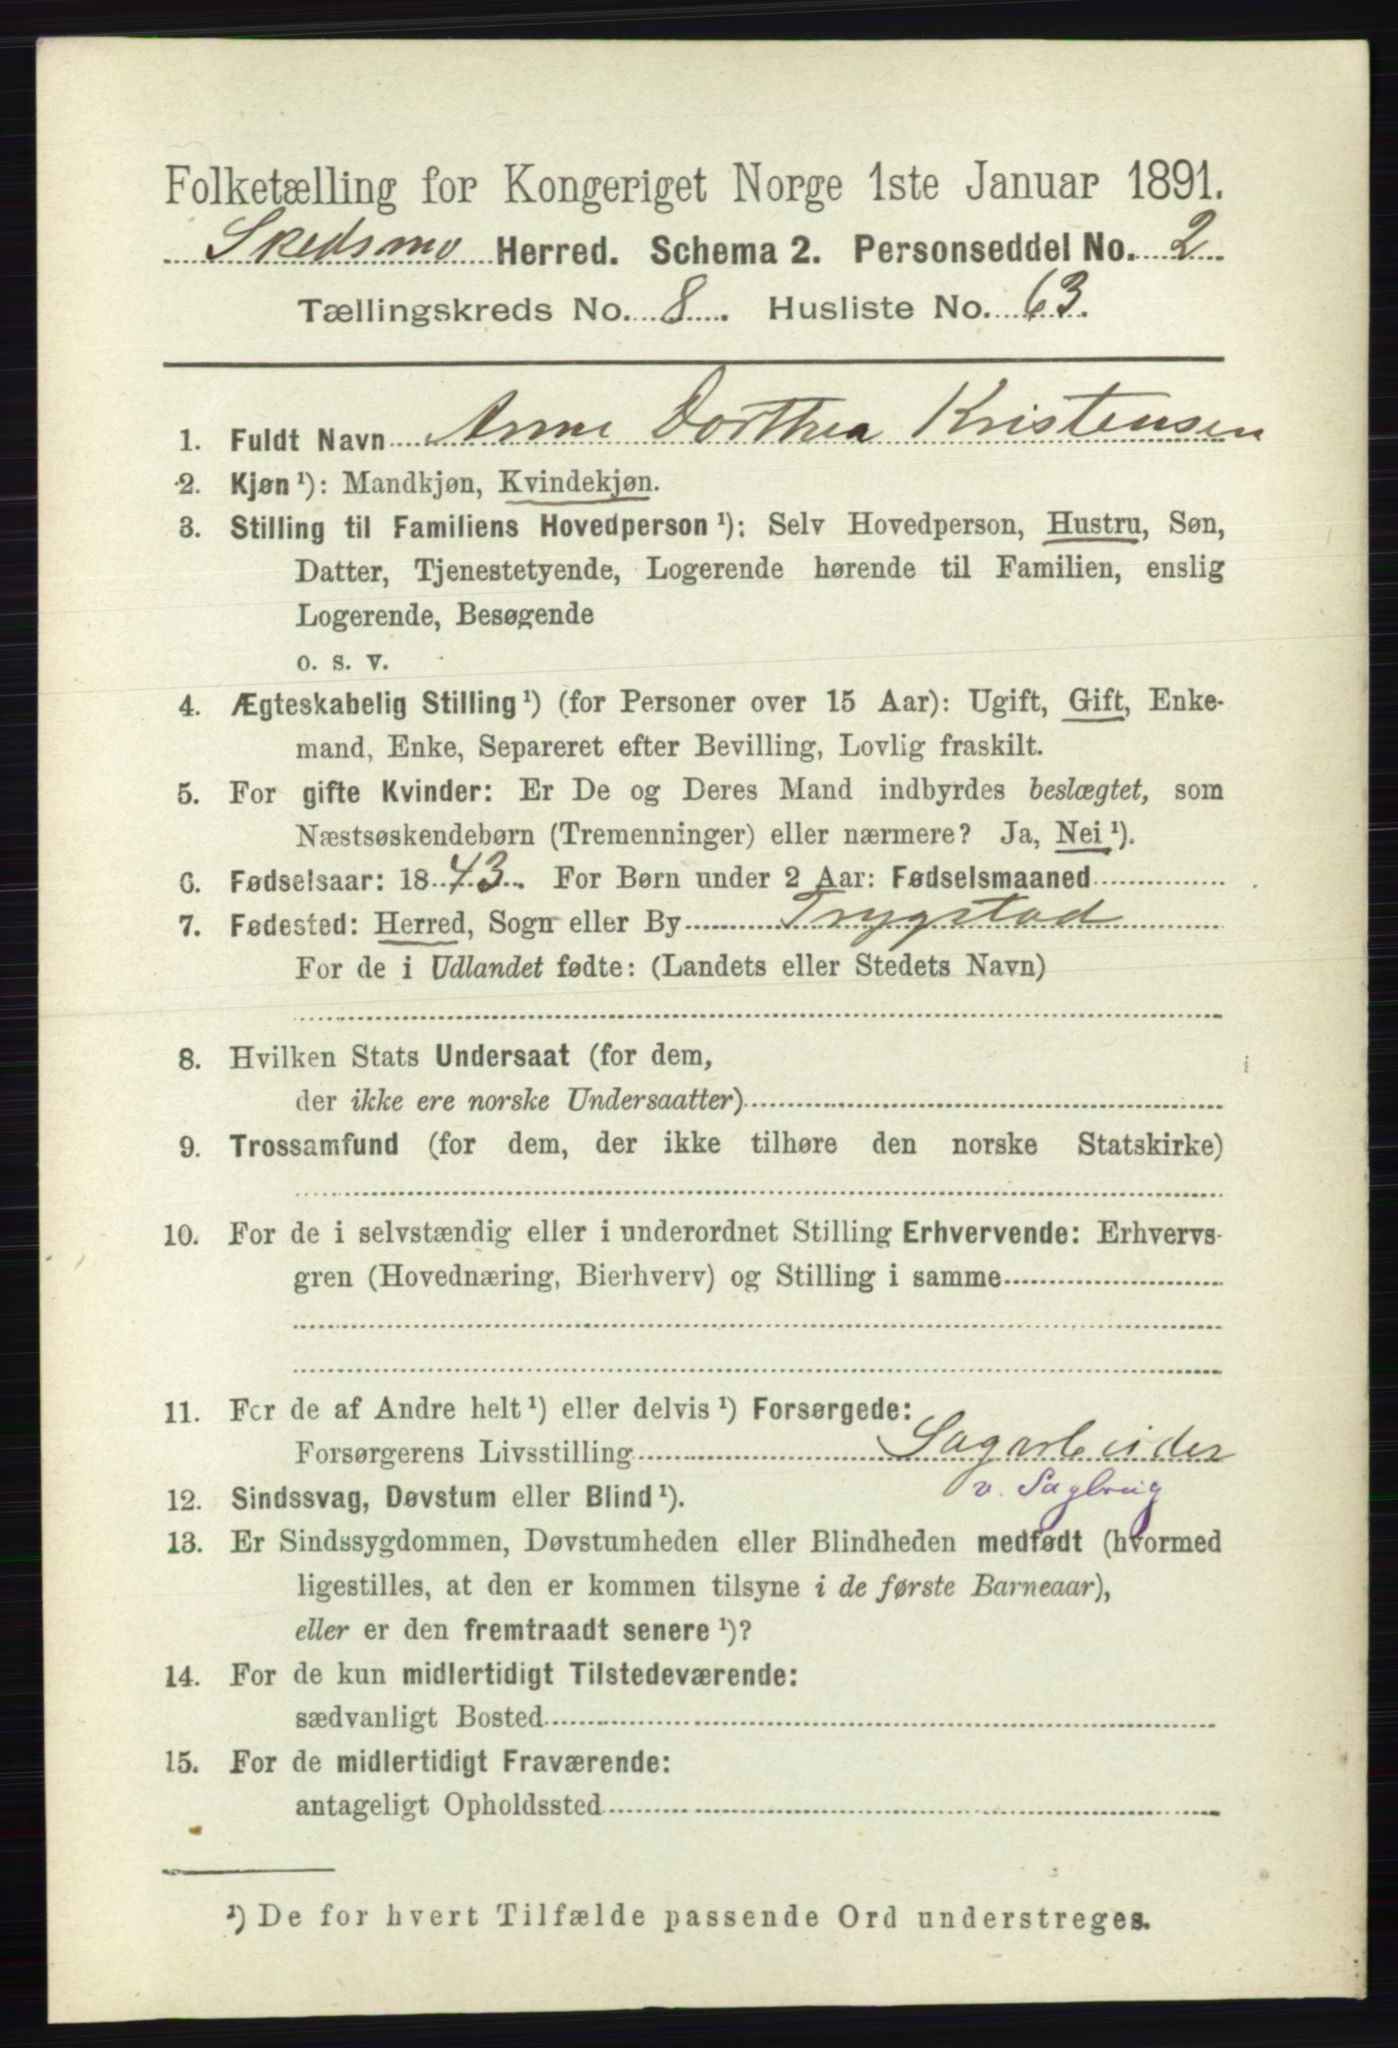 Folketælling for Kongeriget Norge 1ste Januar 1891.
Skedsmo Herred. Schema 2. Personseddel No. 2
Tællingskreds No. 8. Husliste No. 63.
1. Fuldt Navn Anne Dorthea Kristensen
2. Kjøn ¹): Mandkjøn, Kvindekjøn.
3. Stilling til Familiens Hovedperson ¹): Selv Hovedperson, Hustru, Søn,
Datter, Tjenestetyende, Logerende hørende til Familien, enslig
Logerende, Besøgende
o. s. v.
4. Ægteskabelig Stilling ¹) (for Personer over 15 Aar): Ugift, Gift, Enke-
mand, Enke, Separeret efter Bevilling, Lovlig fraskilt.
5. For gifte Kvinder: Er De og Deres Mand indbyrdes beslægtet, som
Næstsøskendebørn (Tremenninger) eller nærmere? Ja, Nei ¹).
6. Fødselsaar: 1843. For Børn under 2 Aar: Fødselsmaaned
7. Fødested: Herred, Sogn eller By Trygstad
For de i Udlandet fødte: (Landets eller Stedets Navn)
8. Hvilken Stats Undersaat (for dem,
der ikke ere norske Undersaatter)
9. Trossamfund (for dem, der ikke tilhøre den norske Statskirke)
10. For de i selvstændig eller i underordnet Stilling Erhvervende: Erhvervs-
gren (Hovednæring, Bierhverv) og Stilling i samme
11. For de af Andre helt ¹) eller delvis ¹) Forsørgede:
Forsørgerens Livsstilling Sagarbeider
v. Sagbrug
12. Sindssvag, Døvstum eller Blind ¹).
13. Er Sindssygdommen, Døvstumheden eller Blindheden medfødt (hvormed
ligestilles, at den er kommen tilsyne i de første Barneaar),
eller er den fremtraadt senere ¹)?
14. For de kun midlertidigt Tilstedeværende:
sædvanligt Bosted
15. For de midlertidigt Fraværende:
antageligt Opholdssted
¹) De for hvert Tilfælde passende Ord understreges.